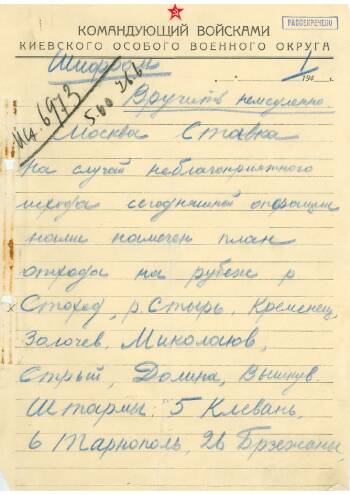 КОМАНДУЮЩИЙ ВОЙСКАМИ
КИЕВСКОГО ОСОБОГО ВОЕННОГО ОКРУГА
РАССЕКРЕЧЕНО
Шифром
194 г.
Вручить немедленно.
Москва Ставка
На случай неблагоприятного
исхода сегодняшней операции
нами намечен план
отхода на рубеж р
Стоход, р. Стырь, Кременец,
Золочев, Миколаюв,
Стрый, Долина, Вышкув.
Штармы: 5 Клевань,
6 Тарнополь, 26 Бржежаны,